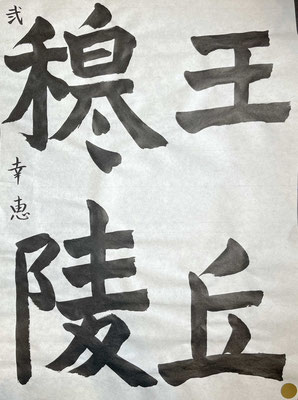 王丘
穆陵
弐 幸恵